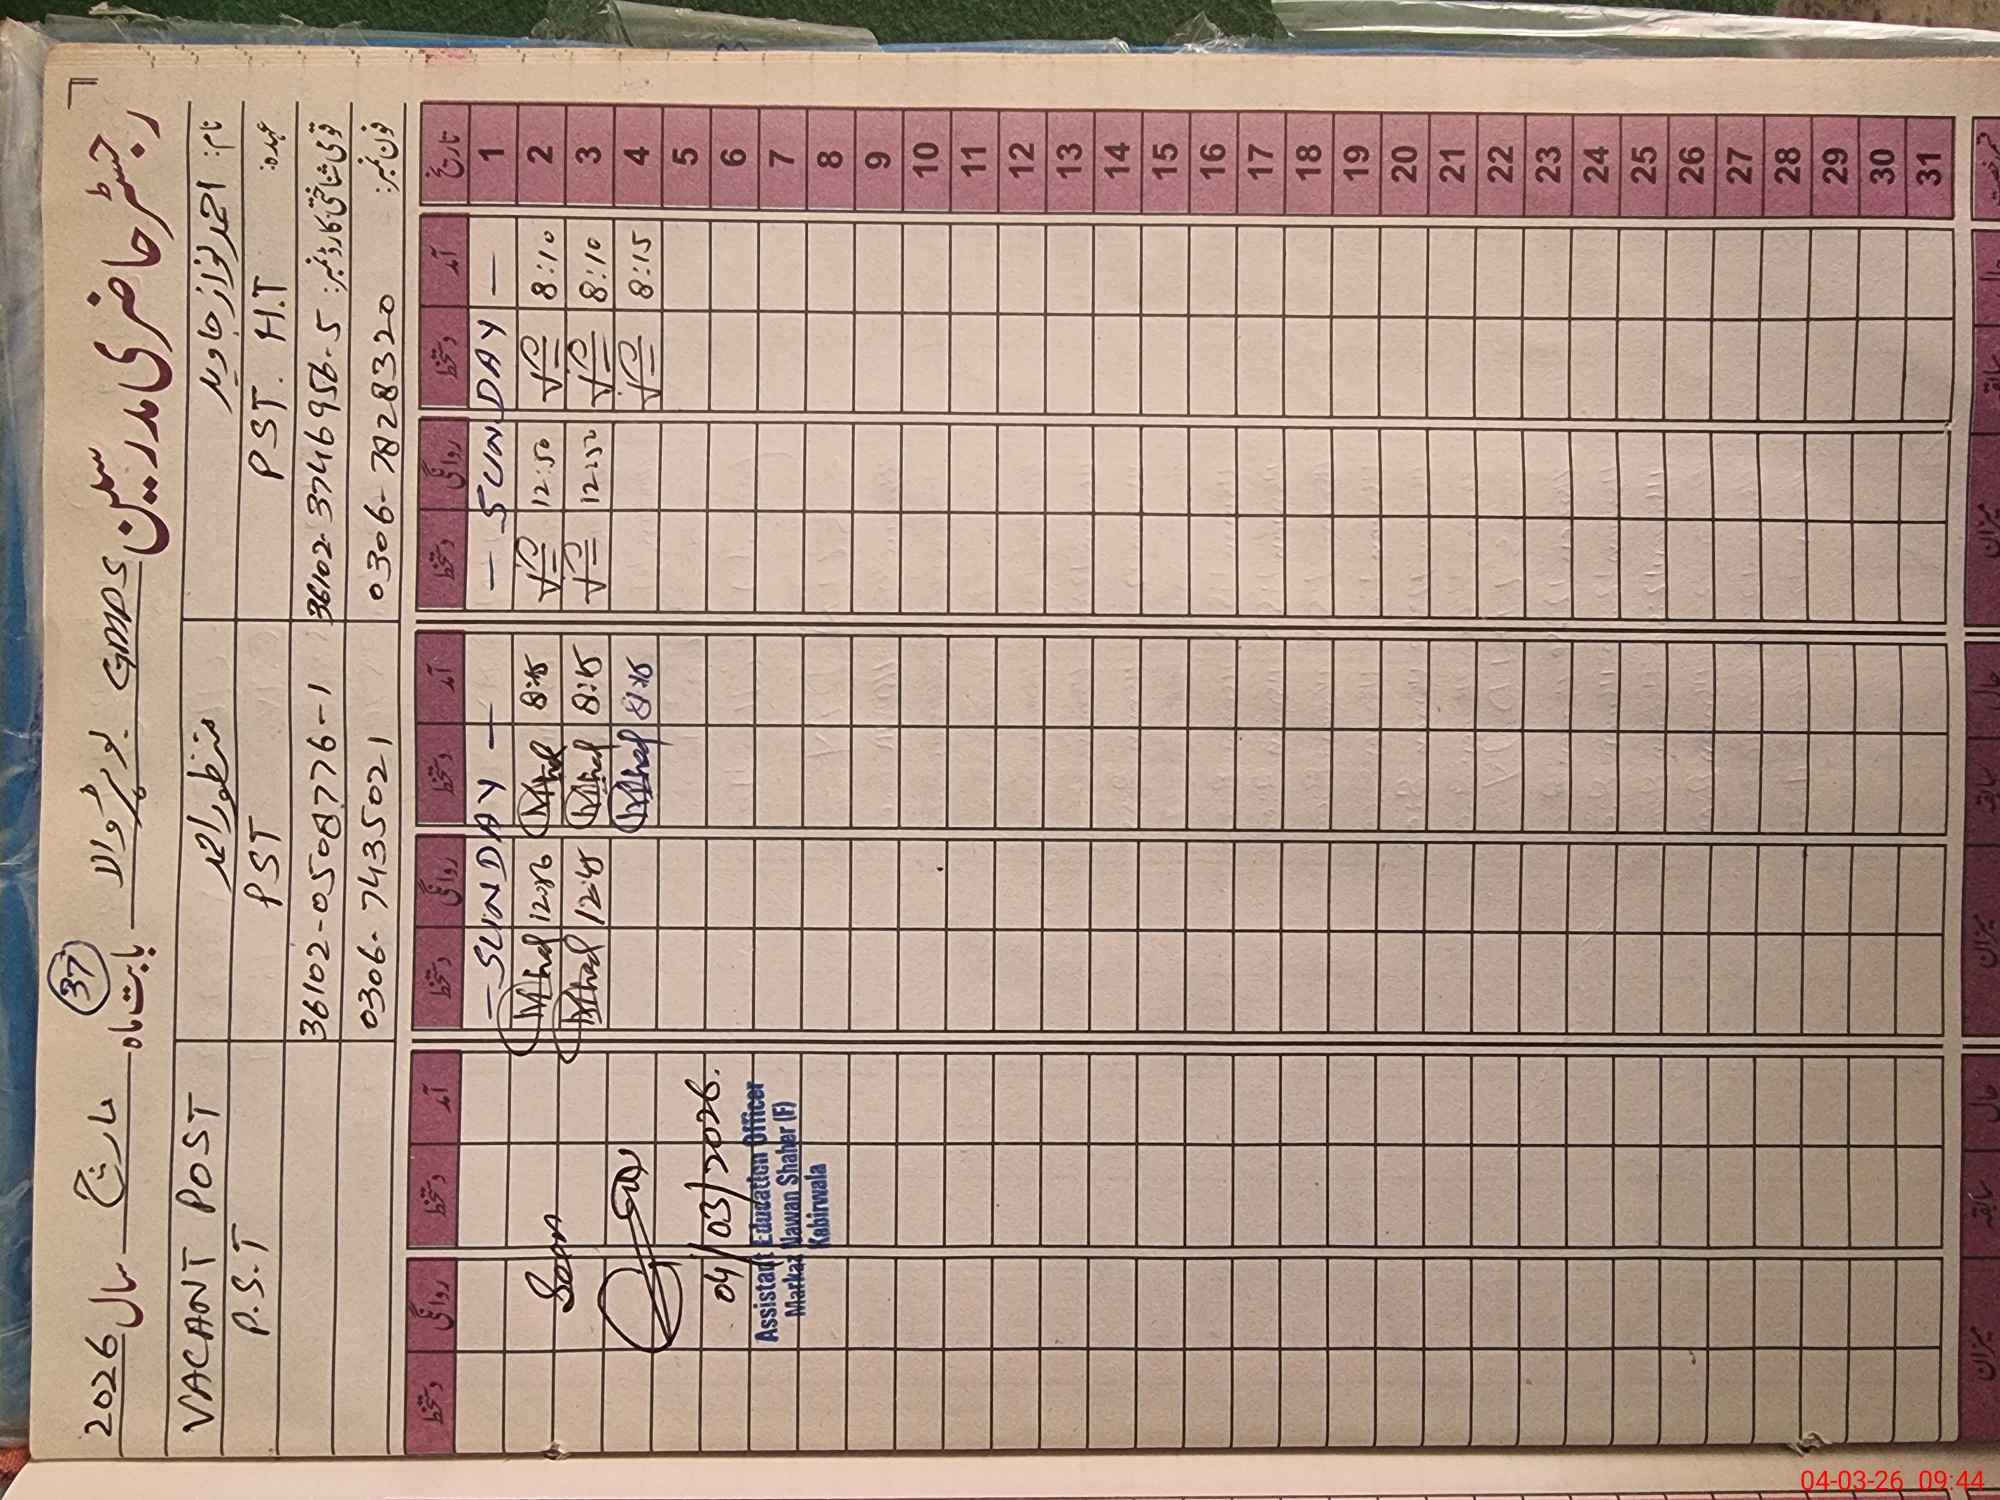 رجسٹر حاضری مدرسین GMPS بورٹروالا بابت ماہ مارچ سال 2026
37
نام: احمد نواز جاوید
منظور احمد
VACANT POST
عہدہ: PST. H.T
PST
P.S.T
قومی شناختی کارڈ نمبر: 36102-3746956-5
36102-0508776-1
فون نمبر: 0306-7828320
0306-7435021
تاریخ آمد دستخط روانگی دستخط آمد دستخط روانگی دستخط آمد دستخط روانگی دستخط
1 — SUNDAY — — SUNDAY —
2 8:10 12:50 8:15
3 8:10 12:50 8:15 12:45
4 8:15 8:15
5
6 04/03/2026.
7 Assistant Education Officer
Markaz Nawan Shaher (F)
8 Kabirwala
9
10
11
12
13
14
15
16
17
18
19
20
21
22
23
24
25
26
27
28
29
30
31
حال سابقہ میزان حال سابقہ میزان حال سابقہ میزان
04-03-26 09:44